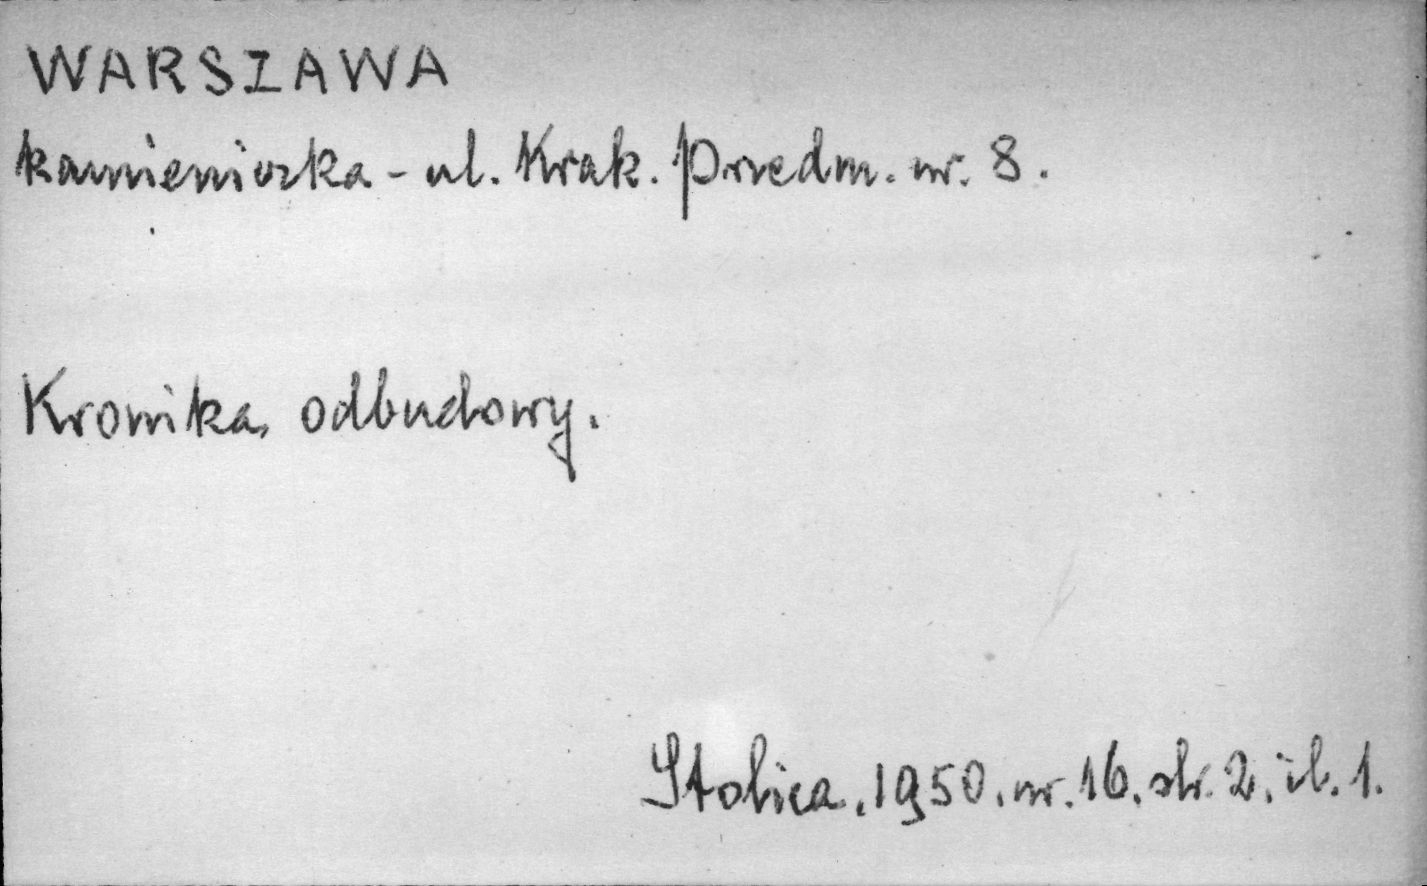 WARSZAWA
kamieniczka - ul. Krak. Przedm. nr. 8.
Kronika odbudowy.
Stolica, 1950. nr. 16. str. 2. il. 1.